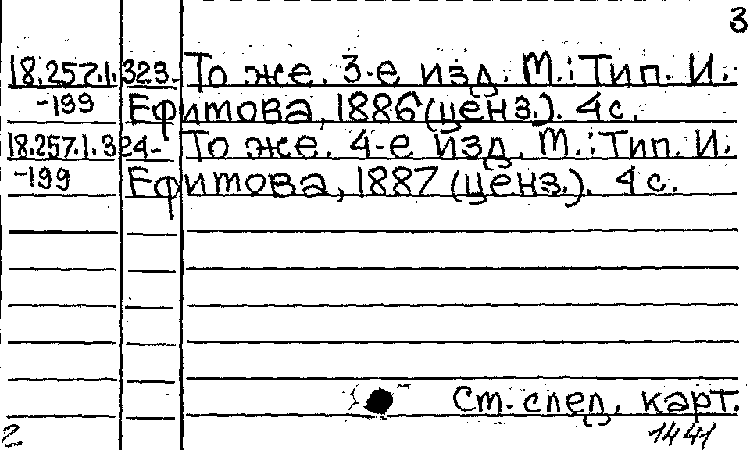 3
18.257.1.323- То же. 3-е изд. М.: Тип. И.
-199 Ефимова, 1886 (ценз.). 4 с.
18.257.1.324- То же. 4-е изд. М.: Тип. И.
-199 Ефимова, 1887 (ценз.). 4 с.
См. след. карт.
2 1441